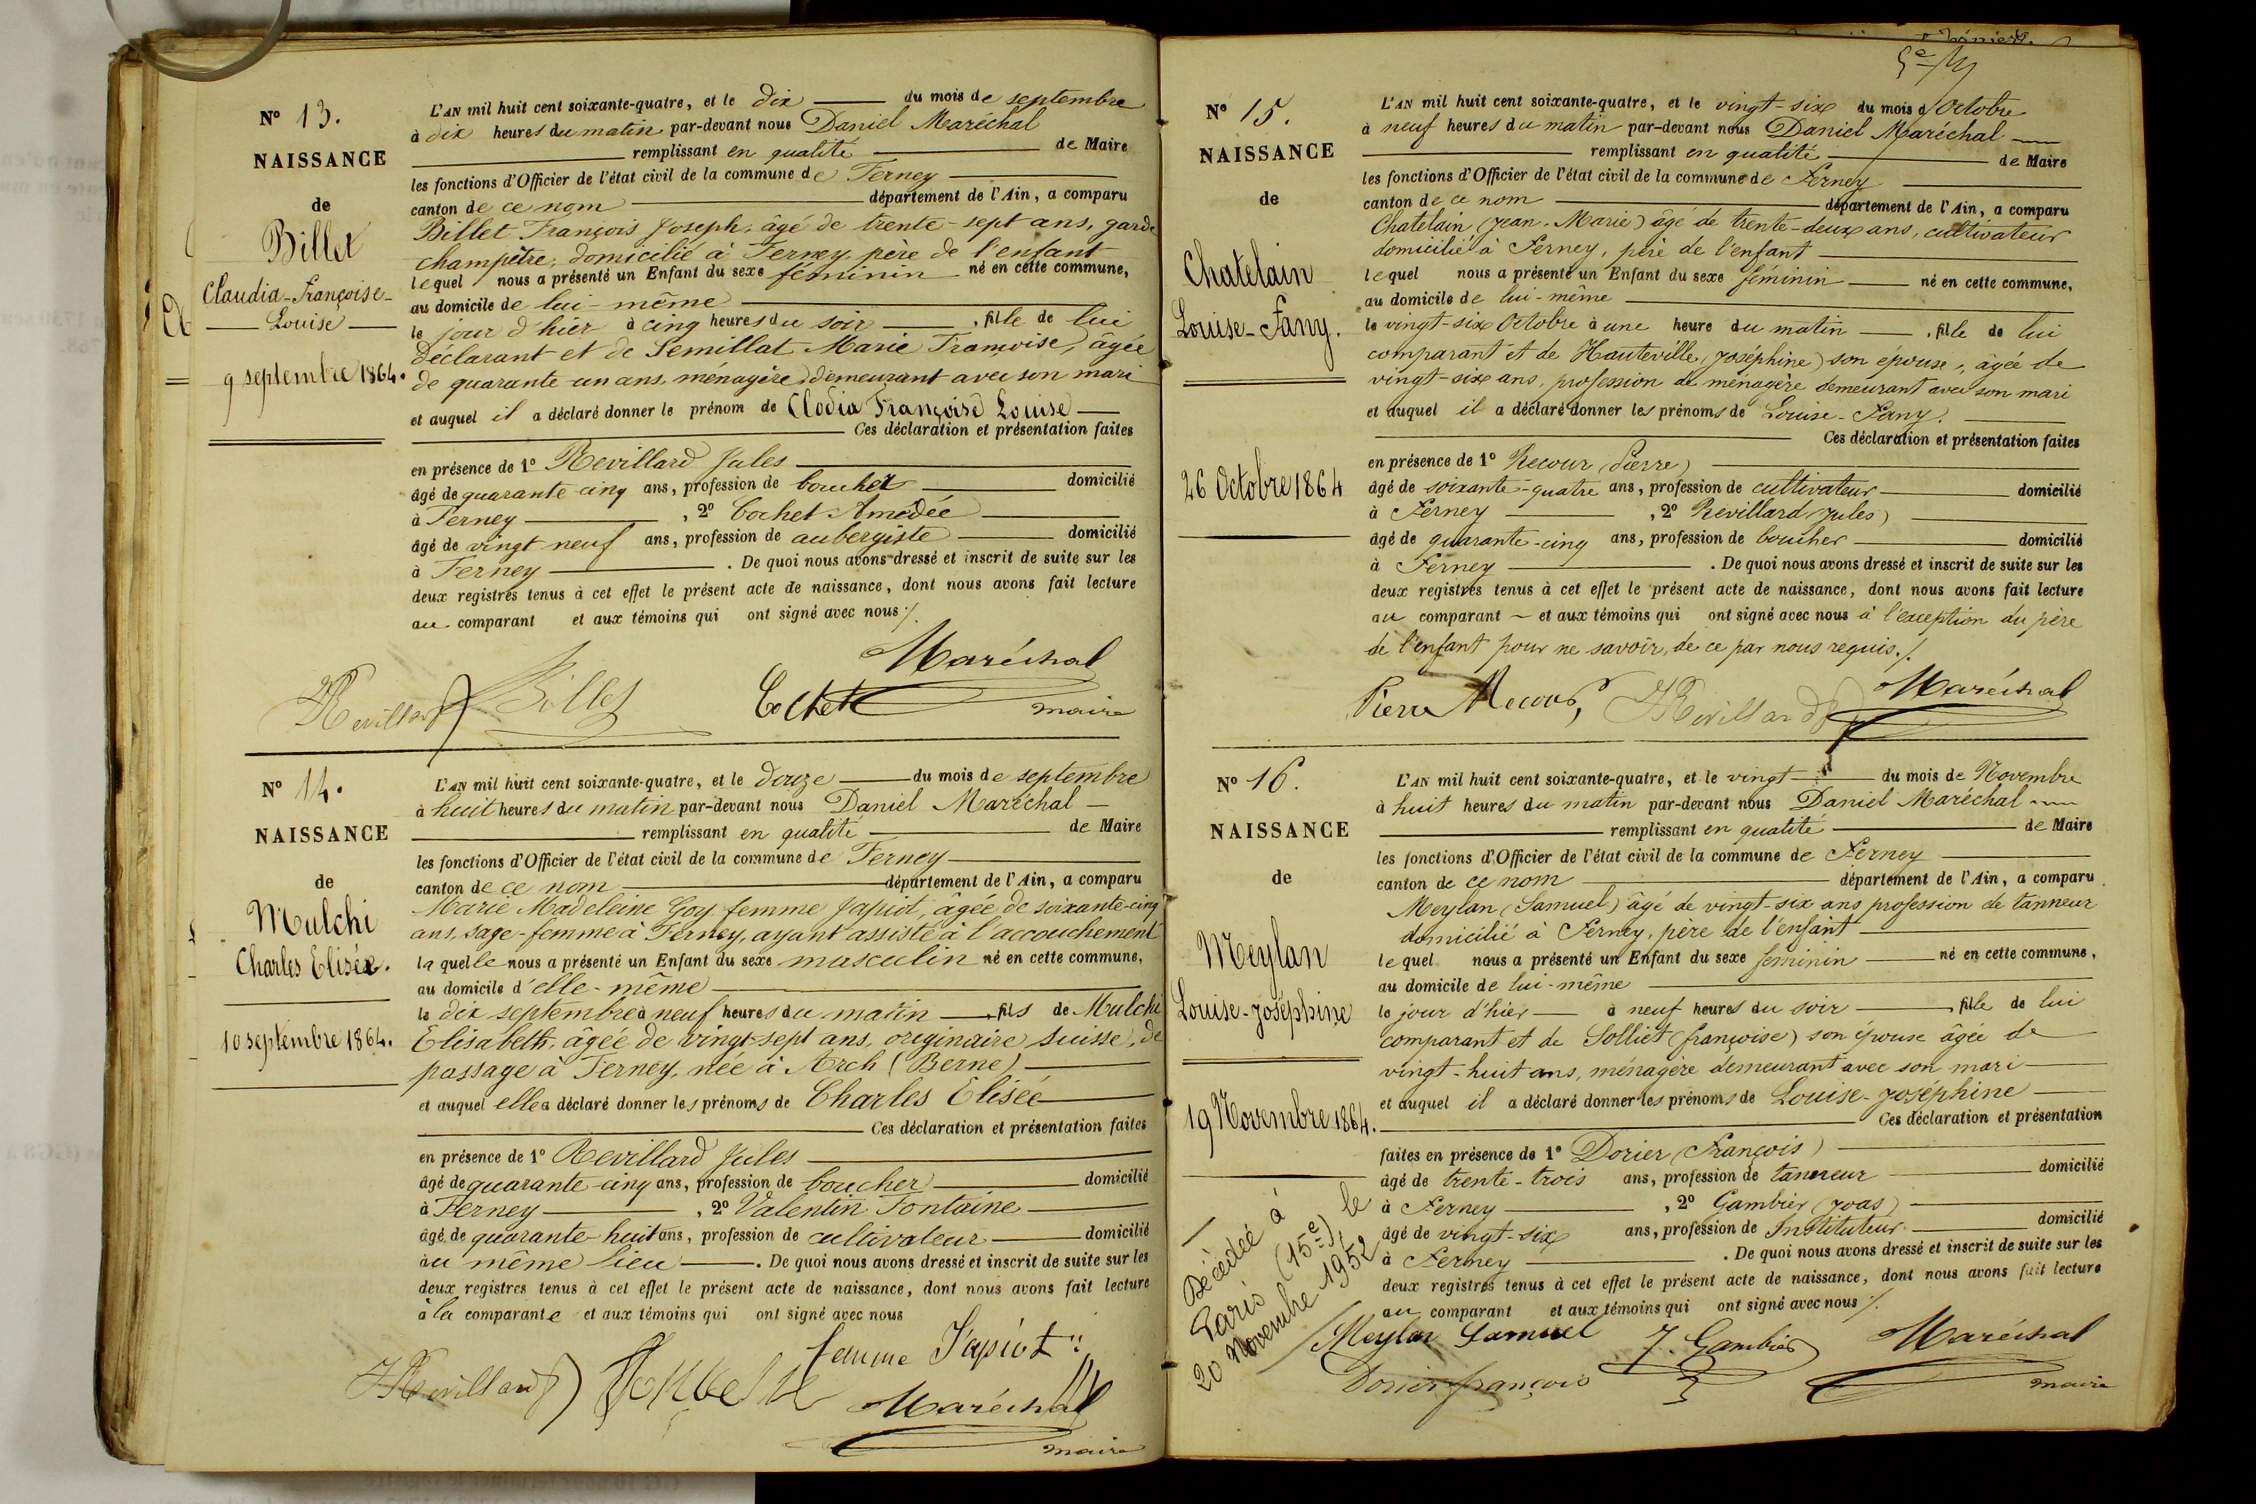 N° 13.
NAISSANCE
de
Billet
Claudia-Françoise-
Louise
9 septembre 1864.
L'AN mil huit cent soixante-quatre, et le dix du mois de septembre
à dix heures du matin par-devant nous Daniel Maréchal
remplissant en qualité de Maire
les fonctions d'Officier de l'état civil de la commune de Ferney
canton de ce nom département de l'Ain, a comparu
Billet François Joseph, âgé de trente-sept ans, garde
champêtre, domicilié à Ferney, père de l'enfant
lequel nous a présenté un Enfant du sexe féminin né en cette commune,
au domicile de lui-même
le jour d'hier à cinq heures du soir, fille de lui
déclarant et de Semillat Marie Françoise, âgée
de quarante-un ans, ménagère, demeurant avec son mari
et auquel il a déclaré donner le prénom de Clodia Françoise Louise
Ces déclaration et présentation faites
en présence de 1° Revillard Jules
âgé de quarante-cinq ans, profession de boucher domicilié
à Ferney, 2° Cochet Amédée
âgé de vingt neuf ans, profession de aubergiste domicilié
à Ferney. De quoi nous avons dressé et inscrit de suite sur les
deux registres tenus à cet effet le présent acte de naissance, dont nous avons fait lecture
au comparant et aux témoins qui ont signé avec nous ./.
Maréchal
JRevillard Billet Cochet maire
N° 14.
NAISSANCE
de
Mulchi
Charles Elisée.
10 septembre 1864.
L'AN mil huit cent soixante-quatre, et le douze du mois de septembre
à huit heures du matin par-devant nous Daniel Maréchal
remplissant en qualité de Maire
les fonctions d'Officier de l'état civil de la commune de Ferney
canton de ce nom département de l'Ain, a comparu
Marie Madeleine Goy femme Japiot, âgée de soixante-cinq
ans, sage-femme à Ferney, ayant assisté à l'accouchement
laquelle nous a présenté un Enfant du sexe masculin né en cette commune,
au domicile d'elle-même
le dix septembre à neuf heures du matin, fils de Mulchi
Elisabeth, âgée de vingt-sept ans, originaire suisse, de
passage à Ferney, née à Arch (Berne)
et auquel elle a déclaré donner les prénoms de Charles Elisée
Ces déclaration et présentation faites
en présence de 1° Revillard Jules
âgé de quarante-cinq ans, profession de boucher domicilié
à Ferney, 2° Valentin Fontaine
âgé de quarante-huit ans, profession de cultivateur domicilié
au même lieu. De quoi nous avons dressé et inscrit de suite sur les
deux registres tenus à cet effet le présent acte de naissance, dont nous avons fait lecture
à la comparante et aux témoins qui ont signé avec nous
femme Japiot
JRevillard Maréchal
maire
N° 15.
NAISSANCE
de
Chatelain
Louise-Fany.
26 Octobre 1864
L'AN mil huit cent soixante-quatre, et le vingt-six du mois d'Octobre
à neuf heures du matin par-devant nous Daniel Maréchal
remplissant en qualité de Maire
les fonctions d'Officier de l'état civil de la commune de Ferney
canton de ce nom département de l'Ain, a comparu
Chatelain (Jean-Marie) âgé de trente-deux ans, cultivateur
domicilié à Ferney, père de l'enfant
lequel nous a présenté un Enfant du sexe féminin né en cette commune,
au domicile de lui-même
le vingt-six Octobre à une heure du matin, fille de lui
comparant et de Hauteville (Joséphine) son épouse, âgée de
vingt-six ans, profession de ménagère demeurant avec son mari
et auquel il a déclaré donner les prénoms de Louise-Fany.
Ces déclaration et présentation faites
en présence de 1° Recour (Pierre)
âgé de soixante-quatre ans, profession de cultivateur domicilié
à Ferney, 2° Revillard (Jules)
âgé de quarante-cinq ans, profession de boucher domicilié
à Ferney. De quoi nous avons dressé et inscrit de suite sur les
deux registres tenus à cet effet le présent acte de naissance, dont nous avons fait lecture
au comparant et aux témoins qui ont signé avec nous à l'exception du père
de l'enfant pour ne savoir, de ce par nous requis ./.
Pierre Recour JRevillard Maréchal
N° 16.
NAISSANCE
de
Meylan
Louise-Joséphine
19 Novembre 1864.
Décédée à
Paris (15e), le
20 Novembre 1952
L'AN mil huit cent soixante-quatre, et le vingt du mois de Novembre
à huit heures du matin par-devant nous Daniel Maréchal
remplissant en qualité de Maire
les fonctions d'Officier de l'état civil de la commune de Ferney
canton de ce nom département de l'Ain, a comparu
Meylan (Samuel) âgé de vingt-six ans profession de tanneur
domicilié à Ferney, père de l'enfant
lequel nous a présenté un Enfant du sexe féminin né en cette commune,
au domicile de lui-même
le jour d'hier à neuf heures du soir, fille de lui
comparant et de Solliet (françoise) son épouse âgée de
vingt-huit ans, ménagère demeurant avec son mari
et auquel il a déclaré donner les prénoms de Louise-Joséphine
Ces déclaration et présentation
faites en présence de 1° Dorier (François)
âgé de trente-trois ans, profession de tanneur domicilié
à Ferney, 2° Gambier (Joas)
âgé de vingt-six ans, profession de Instituteur domicilié
à Ferney. De quoi nous avons dressé et inscrit de suite sur les
deux registres tenus à cet effet le présent acte de naissance, dont nous avons fait lecture
au comparant et aux témoins qui ont signé avec nous ./.
Meylan Samuel J. Gambier Maréchal
Dorier françois maire